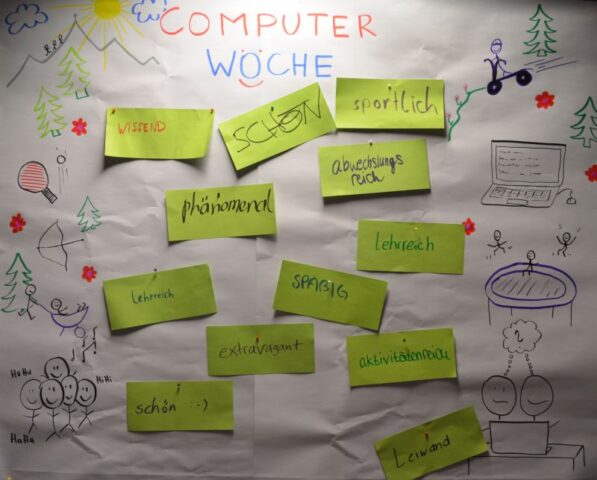 COMPUTER
WOCHE
sportlich
SCHÖN
WISSEND
abwechslungs
reich
phänomenal
Lehrreich
Lehrreich
SPAßIG
extravagant
aktivitätenreich
schön :-)
Leiwand
HuHu
HiHi
HaHa
?